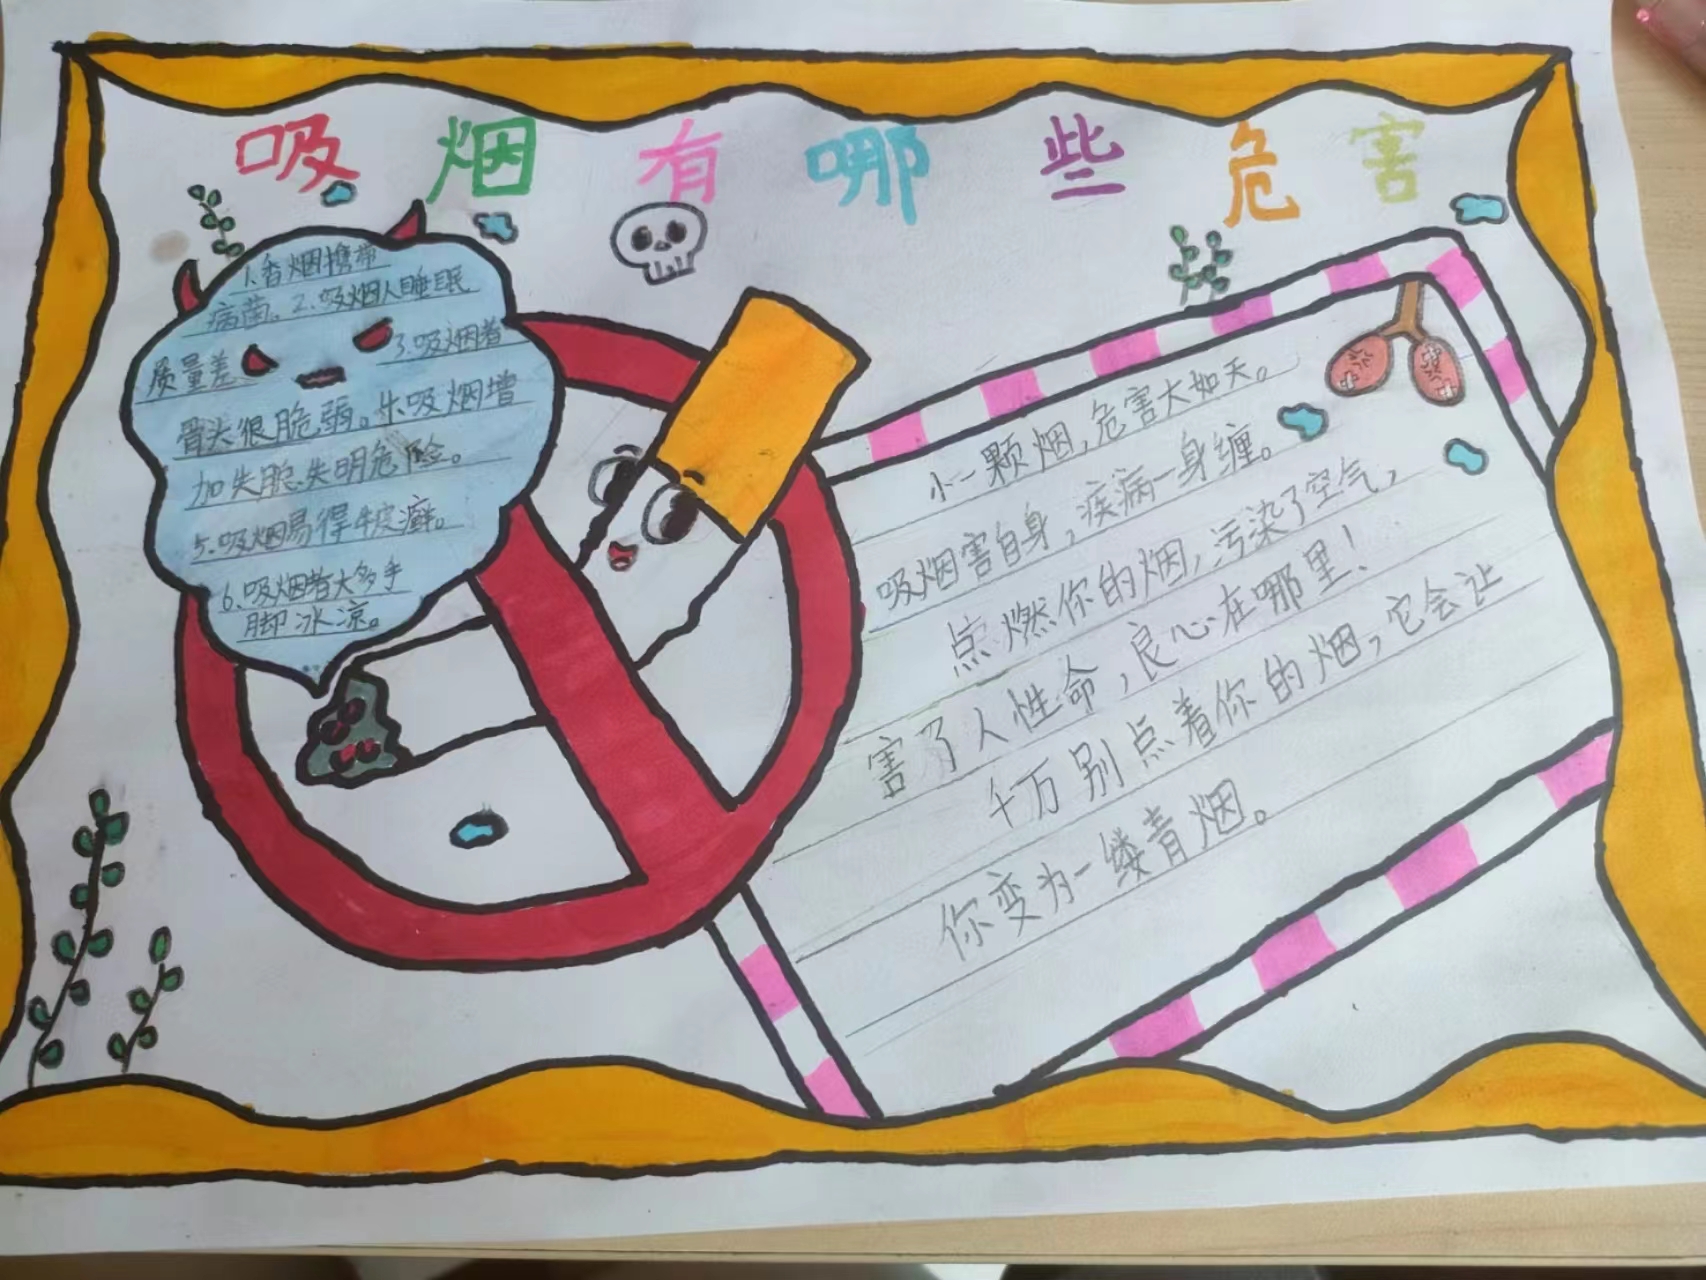 吸烟有哪些危害
1.香烟携带
病菌。2.吸烟人睡眠
质量差 3.吸烟者
骨头很脆弱。4.吸烟增
加失聪.失明危险。
5.吸烟易得牛皮癣。
6.吸烟者大多手
脚冰凉。
小一颗烟,危害大如天。
吸烟害自身,疾病一身缠。
点燃你的烟,污染了空气,
害了人性命,良心在哪里!
千万别点着你的烟,它会让
你变为一缕青烟。